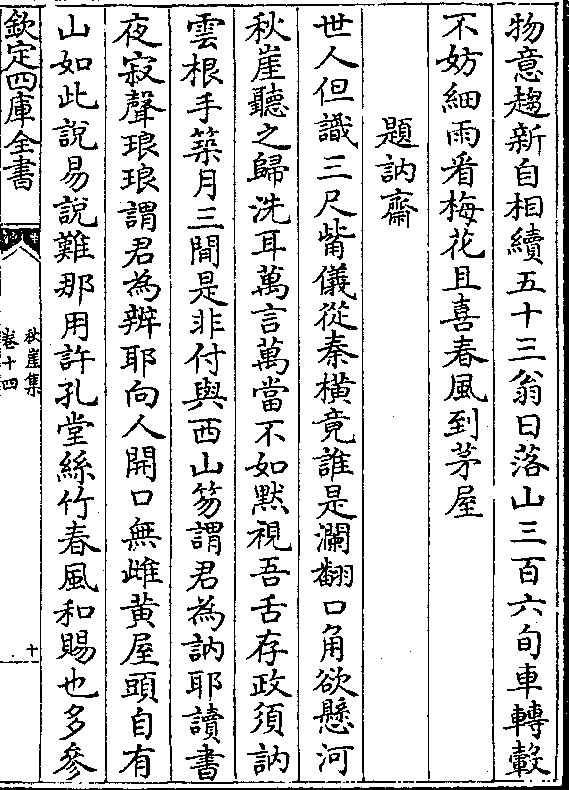 物意趨新自相續五十三翁日落山三百六旬車轉轂
不妨細雨看梅花且喜春風到茅屋
題訥齋
世人但識三尺觜儀從秦橫竟誰是瀾翻口角欲懸河
秋崖聽之歸洗耳萬言萬當不如黙視吾舌存政須訥
雲根手築月三間是非付與西山笏謂君為訥耶讀書
夜寂聲琅琅謂君為辨耶向人開口無雌黃屋頭自有
山如此說易說難那用許孔堂絲竹春風和賜也多參
欽定四庫全書
秋崖集
卷十四
十